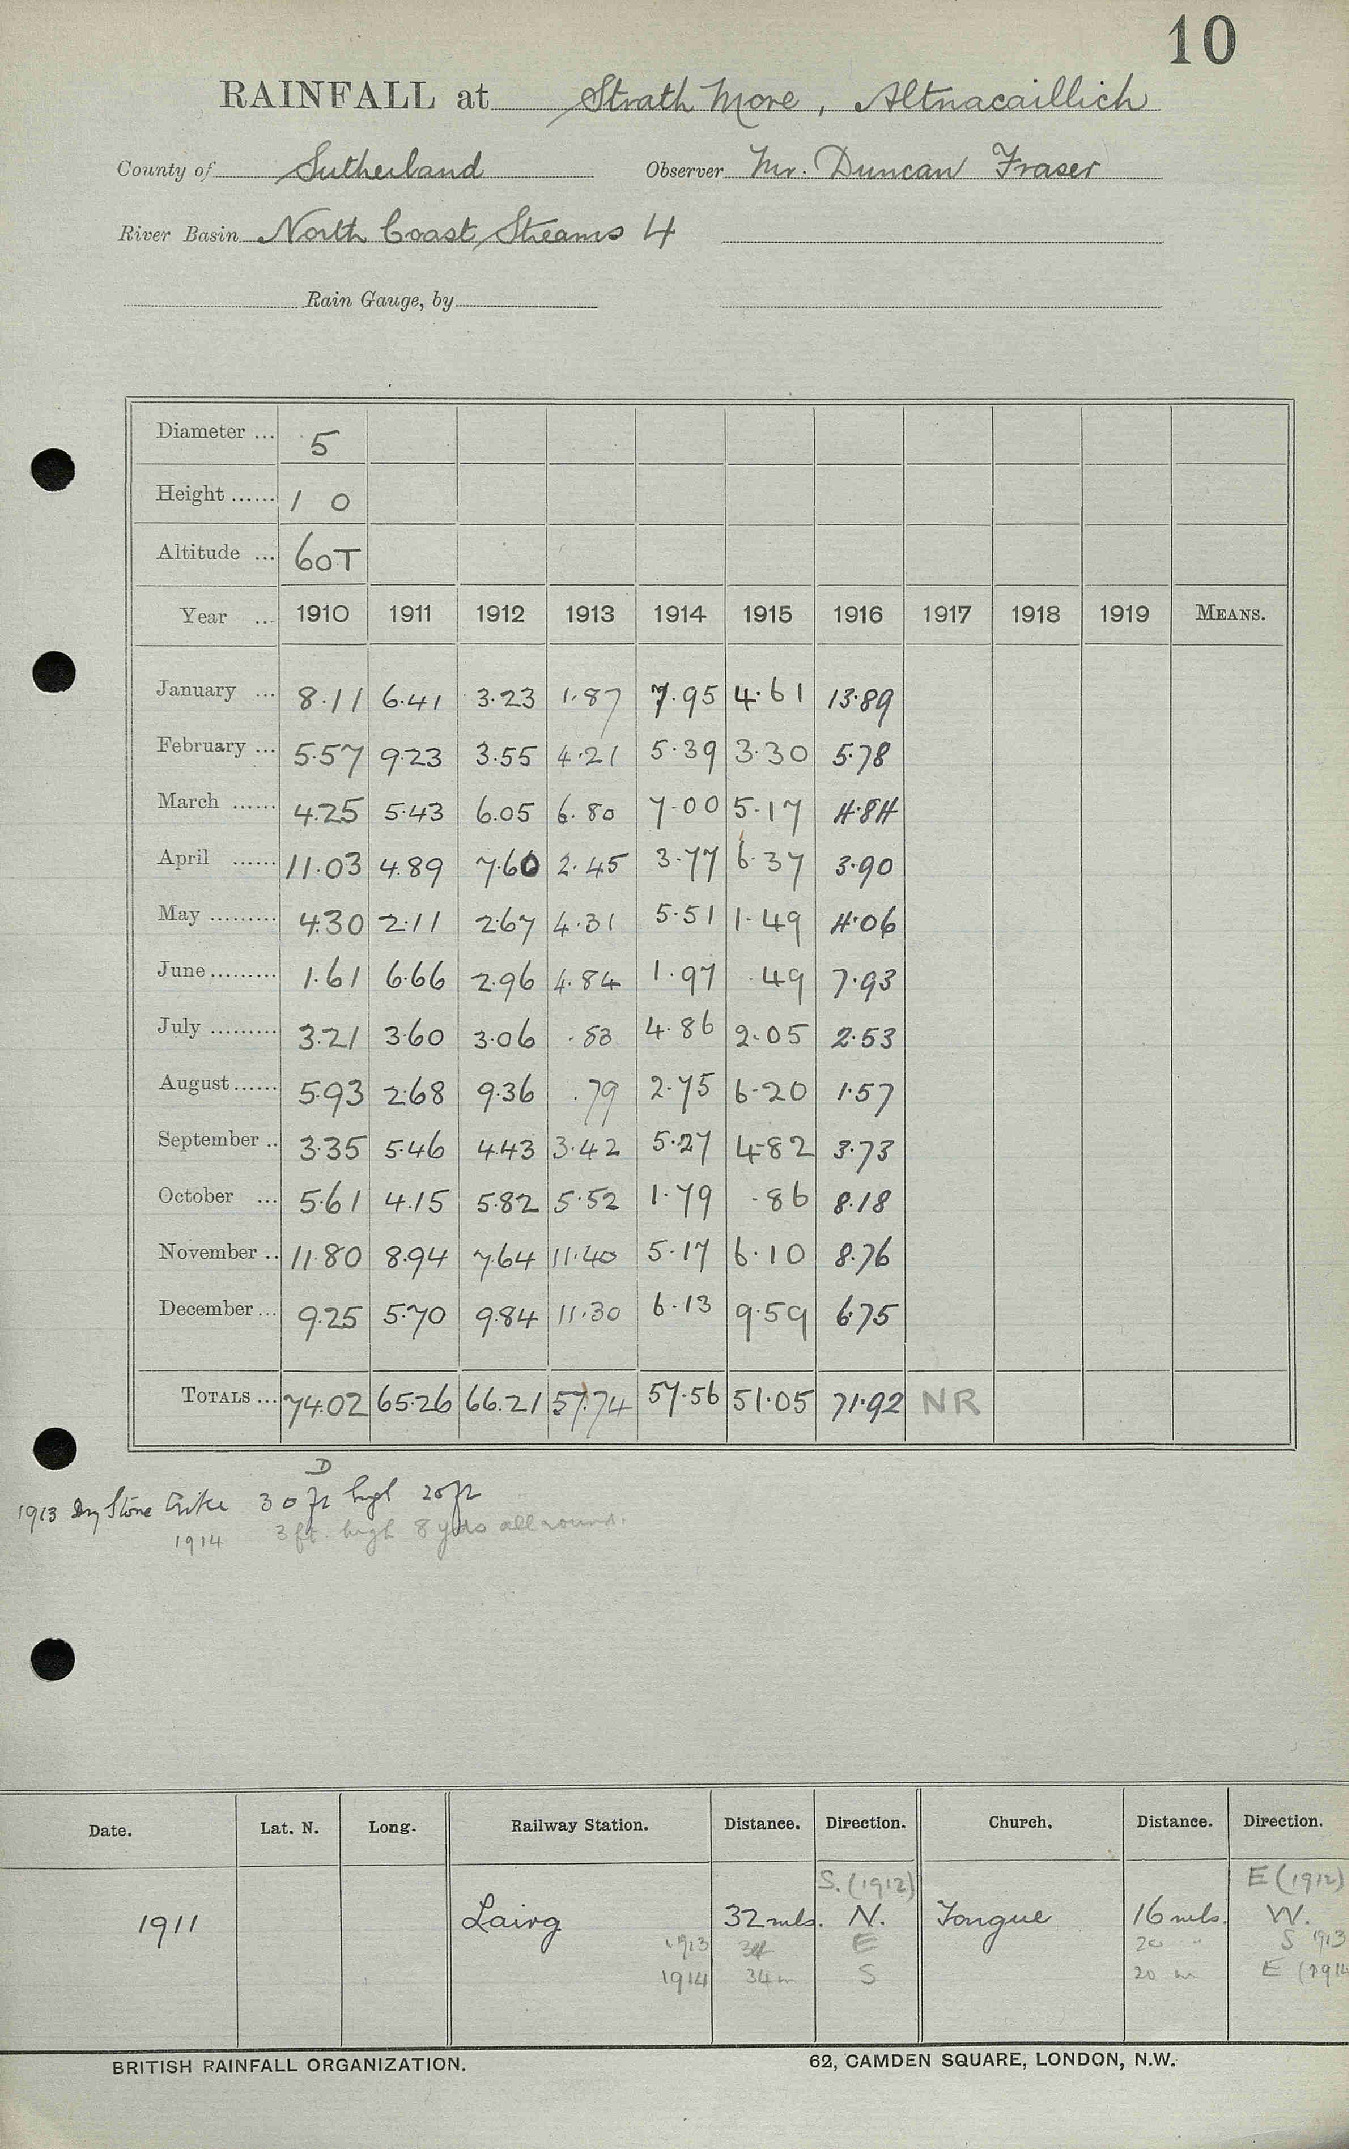 10
RAINFALL at Strath More, Altnacaillich
County of Sutherland Observer Mr. Duncan Fraser
River Basin North Coast Streams 4
Rain Gauge, by
Diameter ... 5
Height ...... 1 0
Altitude ... 60T
Year ... 1910 1911 1912 1913 1914 1915 1916 1917 1918 1919 MEANS.
January ... 8.11 6.41 3.23 1.87 7.95 4.61 13.89
February ... 5.57 9.23 3.55 4.21 5.39 3.30 5.78
March ...... 4.25 5.43 6.05 6.80 7.00 5.17 4.84
April ...... 11.03 4.89 7.60 2.45 3.77 6.37 3.90
May ......... 4.30 2.11 2.67 4.31 5.51 1.49 4.06
June ......... 1.61 6.66 2.96 4.84 1.97 .49 7.93
July ......... 3.21 3.60 3.06 .83 4.86 2.05 2.53
August ...... 5.93 2.68 9.36 .79 2.75 6.20 1.57
September .. 3.35 5.46 4.43 3.42 5.27 4.82 3.73
October ... 5.61 4.15 5.82 5.52 1.79 .86 8.18
November .. 11.80 8.94 7.64 11.40 5.17 6.10 8.76
December ... 9.25 5.70 9.84 11.30 6.13 9.59 6.75
TOTALS ... 74.02 65.26 66.21 57.74 57.56 51.05 71.92 NR
D
1913 Dry Stone 30 ft high 20 ft
1914 3 ft. high 8 yds all round.
Date. Lat. N. Long. Railway Station. Distance. Direction. Church. Distance. Direction.
S. (1912) E (1912)
1911 Lairg 32 mls. N. Tongue 16 mls. W.
1913 34 E 20 " S 1913
1914 34 m S 20 m E (1914
BRITISH RAINFALL ORGANIZATION. 62, CAMDEN SQUARE, LONDON, N.W.